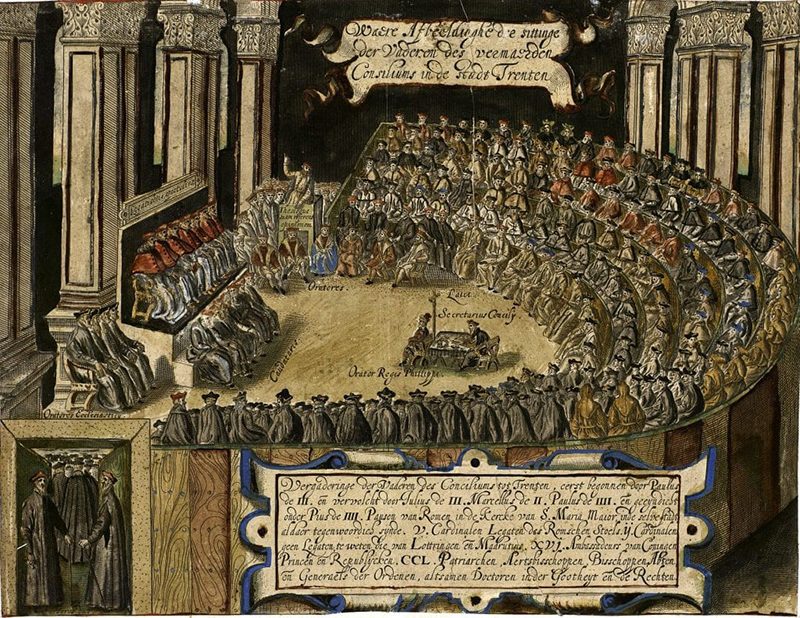 Waere Afbeeldinghe d'e sittinge
der Vaderen des vermaerden
Consiliums in de stadt Trenten
Oratores.
Laici.
Secretarius Concilij
Orator Regis Philippi.
Oratores Ecclesiastici
Vergaderinge der Vaderen des Conciliums tot Trenten, eerst begonnen door Paulus
de III, en vervolcht door Julius de III. Marcellus de II. Paulus de IIII. en geeyndicht
onder Pius de IIII. Pausen van Romen, in de Kercke van S. Maria Maior inde selve stadt
aldaer tegenwoordich synde. V. Cardinalen Legaten des Romschen stoels, ij. Cardinalen
geen Legaten te weten die van Lottringen en Madrutius, XVI. Ambassadeurs van Coningen
Princen en Republijcken, CCL. Patriarchen, Aertsbisschoppen, Bisschoppen Abten,
en Generaels der Ordenen, altsamen Doctoren in der Gootheyt en de Rechten.